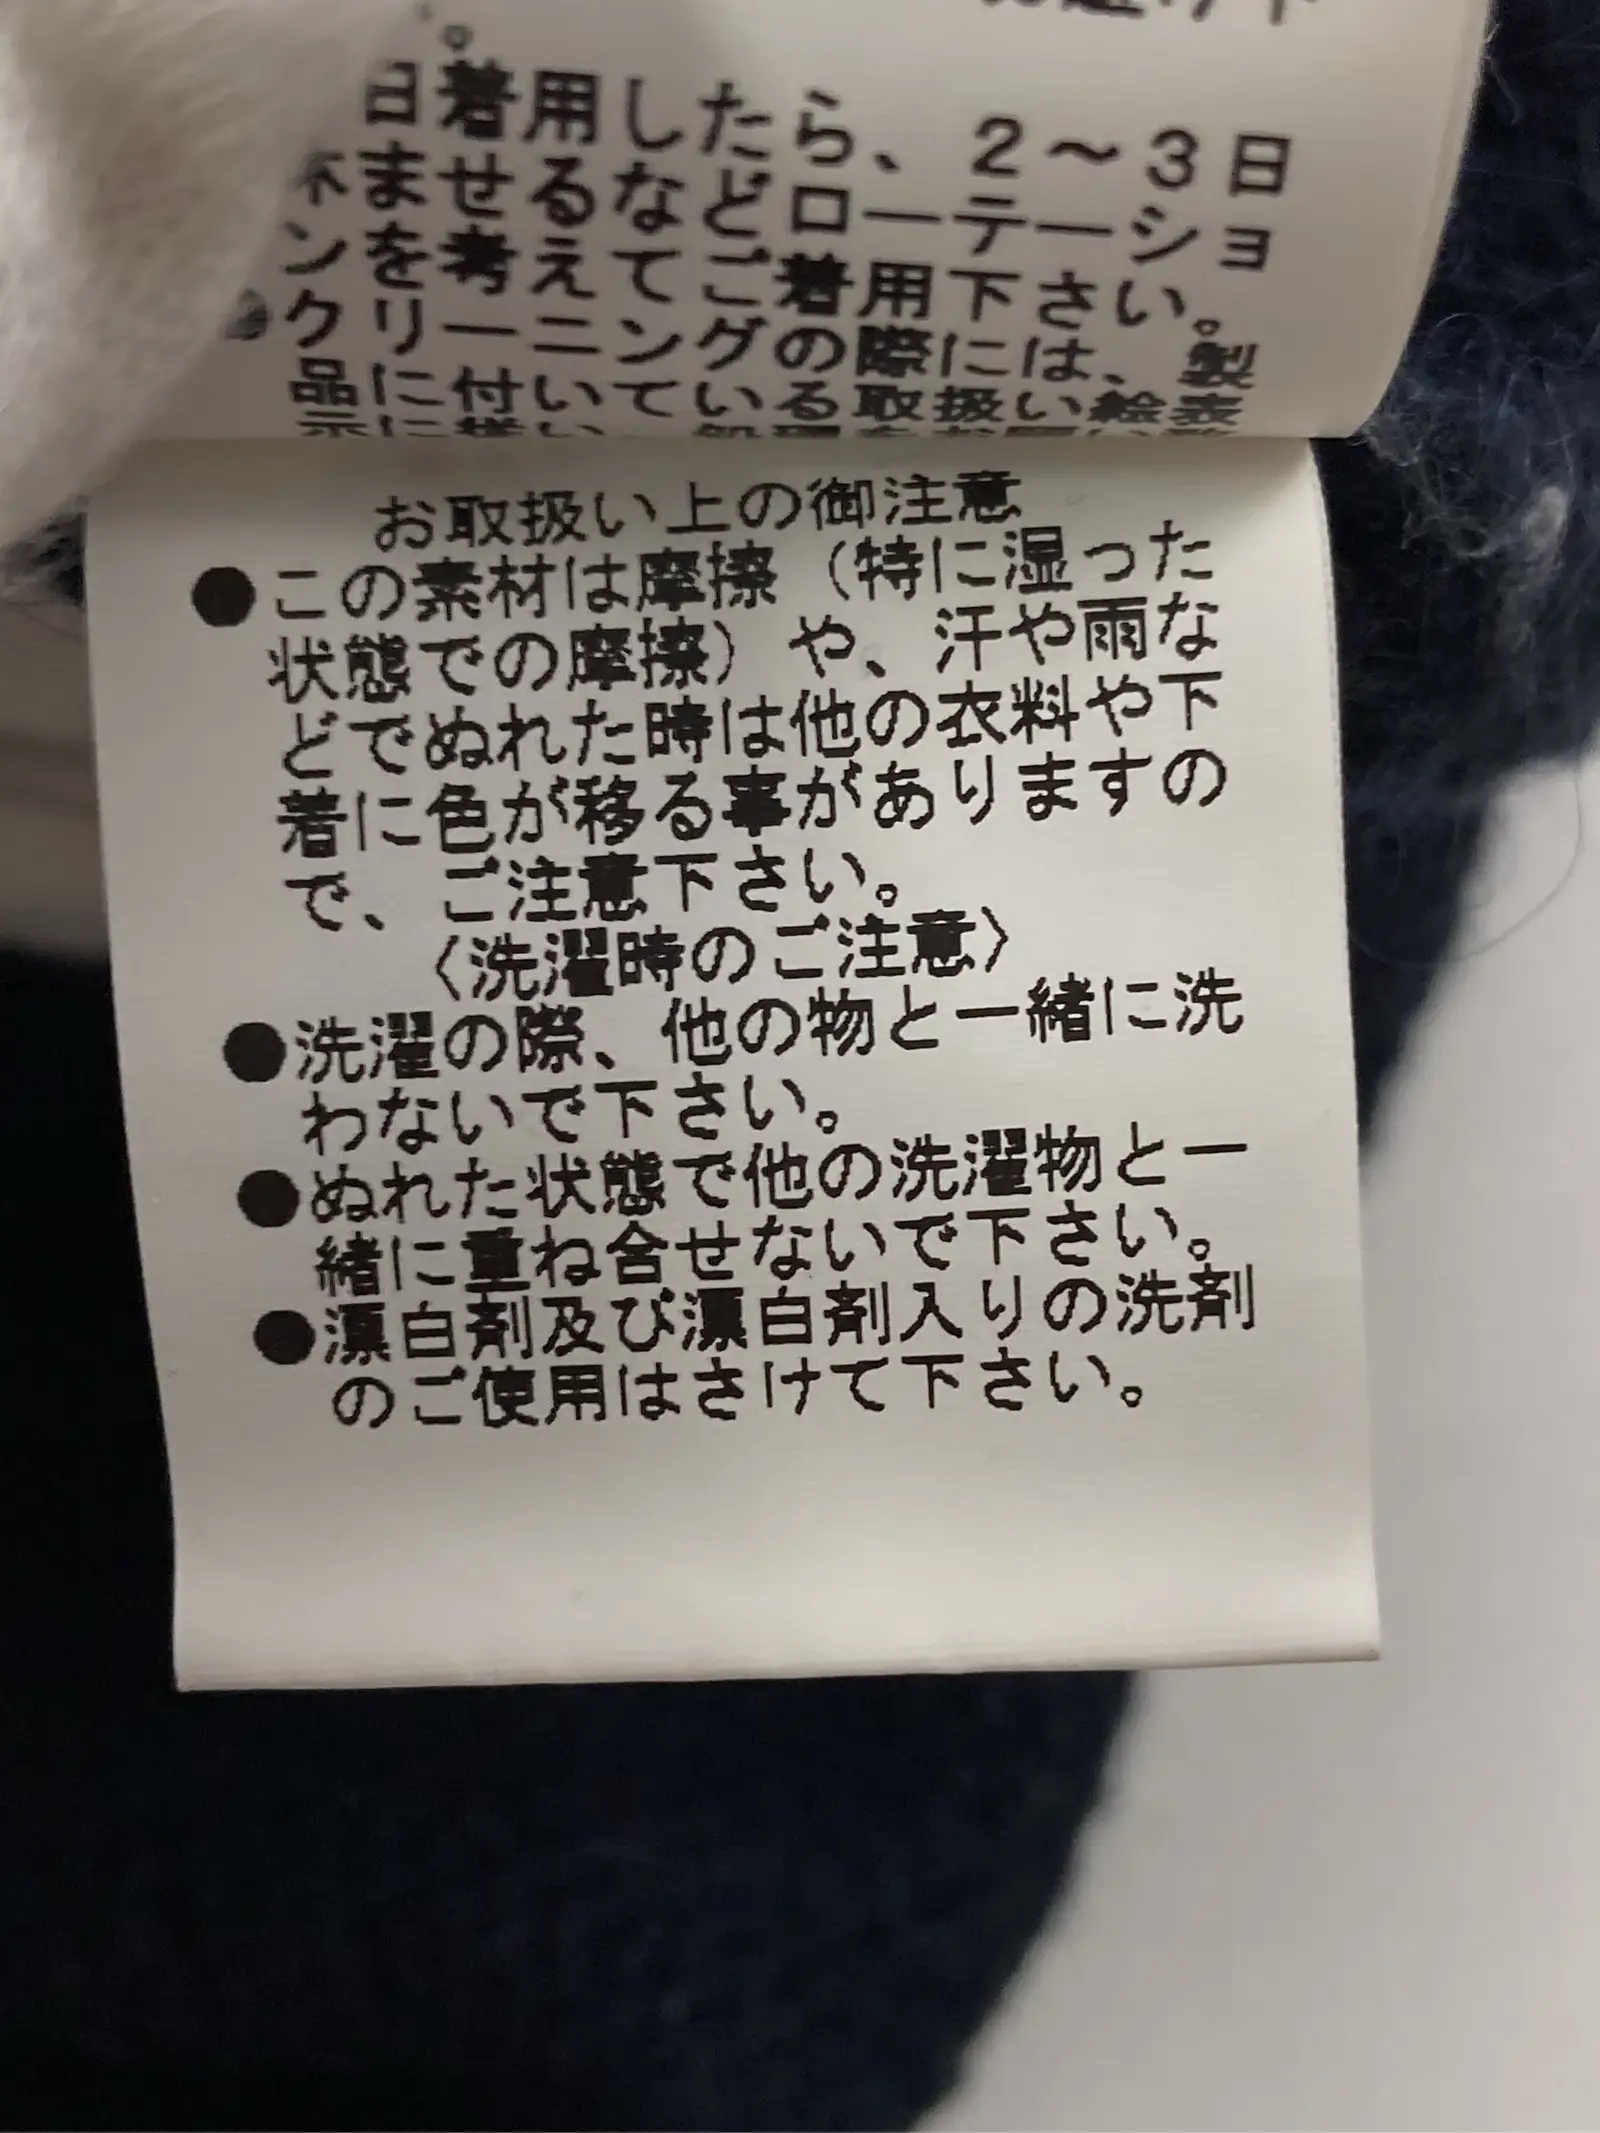 日着用したら、2〜3日
ませるなどローテーショ
ンを考えてご着用下さい。
クリーニングの際には、製
品に付いている取扱い絵表
お取扱い上の御注意
●この素材は摩擦（特に湿った
状態での摩擦）や、汗や雨な
どでぬれた時は他の衣料や下
着に色が移る事がありますの
で、ご注意下さい。
〈洗濯時のご注意〉
●洗濯の際、他の物と一緒に洗
わないで下さい。
●ぬれた状態で他の洗濯物と一
緒に重ね合せないで下さい。
●漂白剤及び漂白剤入りの洗剤
のご使用はさけて下さい。